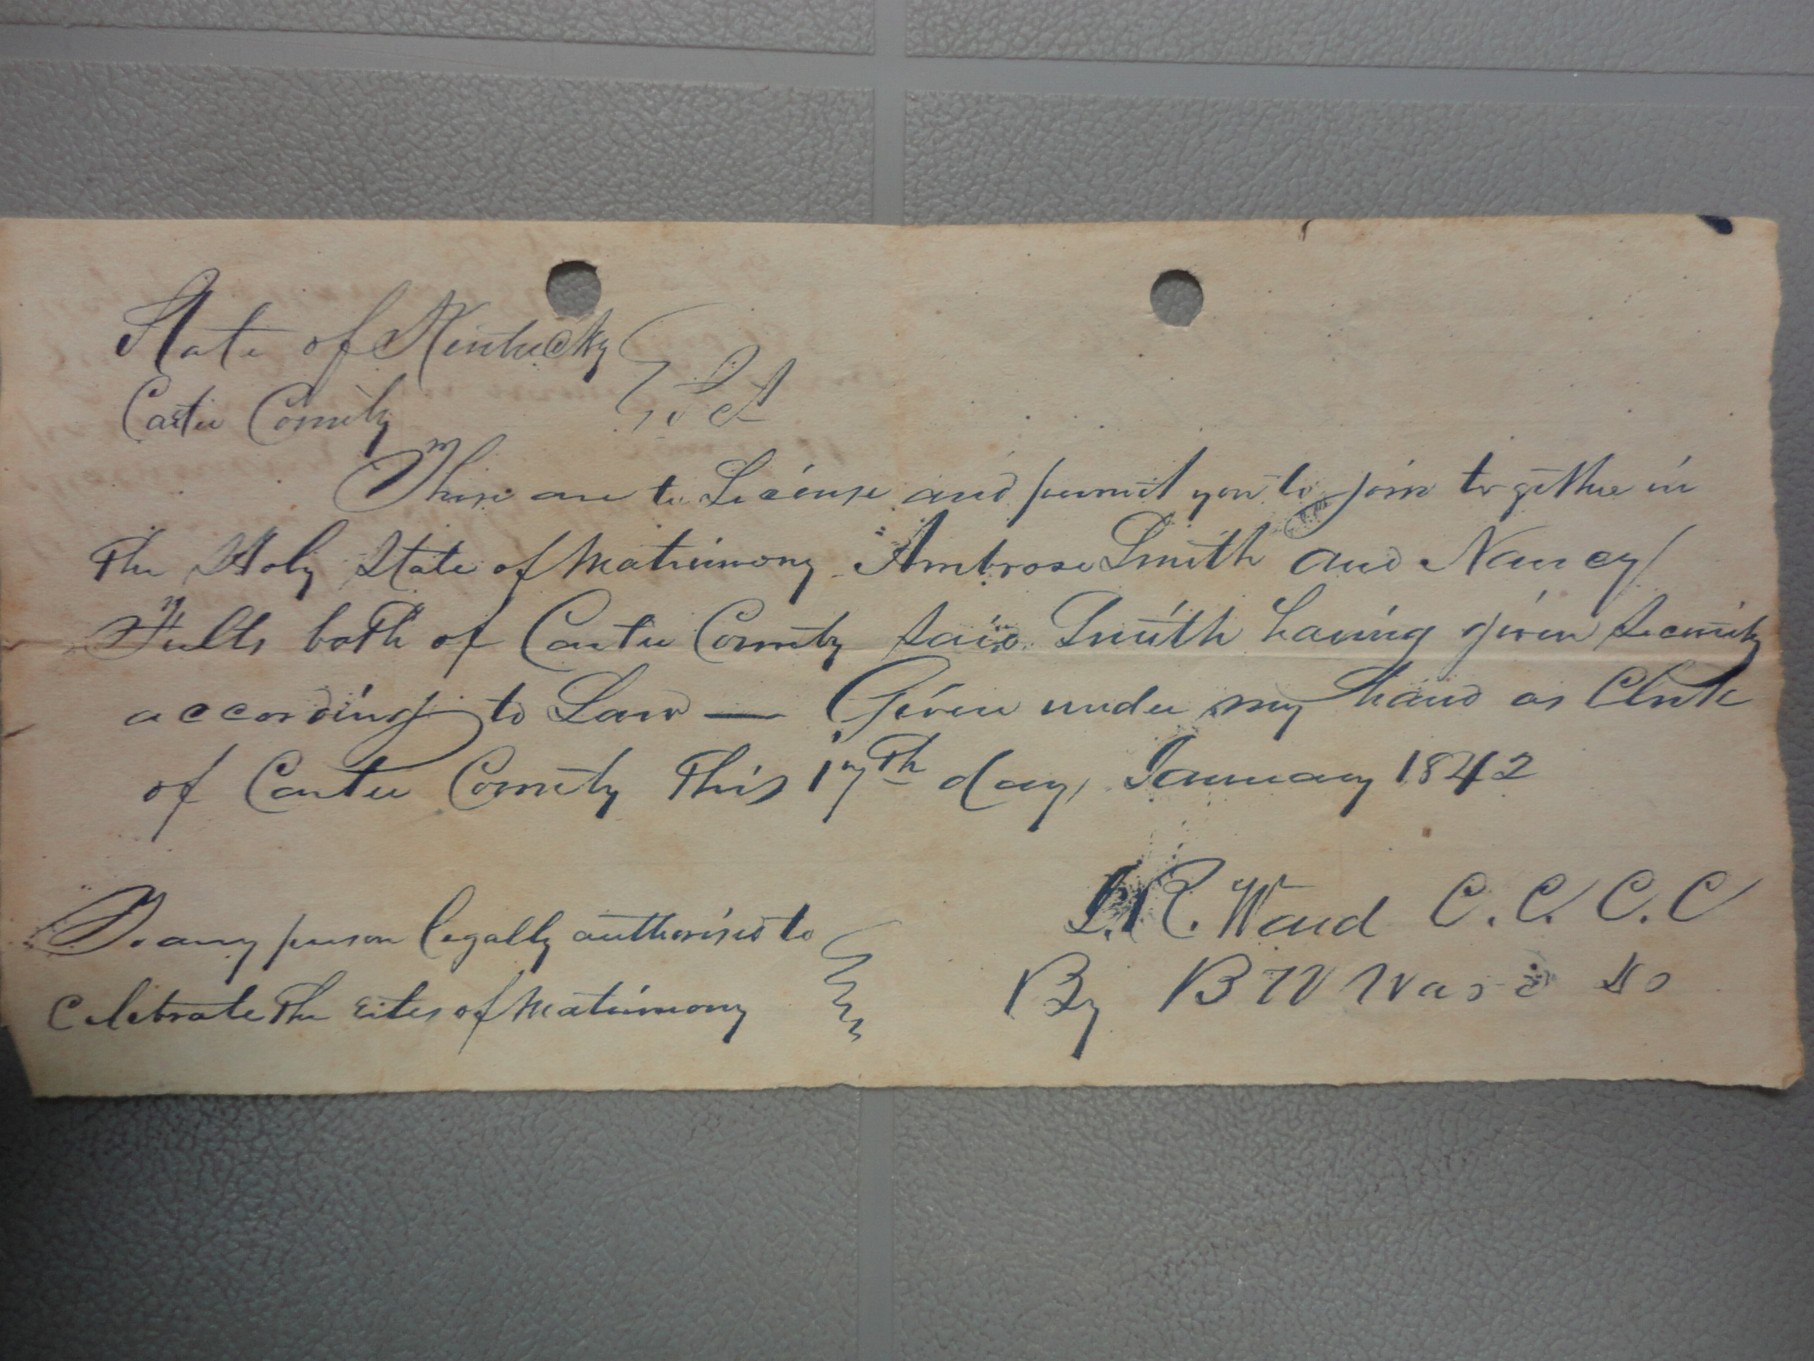 State of Kentucky
Carter County Sct
These are to License and permit you to join together in
the Holy State of Matrimony Ambrose Smith and Nancy
Fults both of Carter County said Smith having given Security
according to Law — Given under my hand as Clerk
of Carter County this 17th day January 1842
To any person legally authorised to
Celebrate the rites of Matrimony
Ward C.C.C.C
By B W Ward